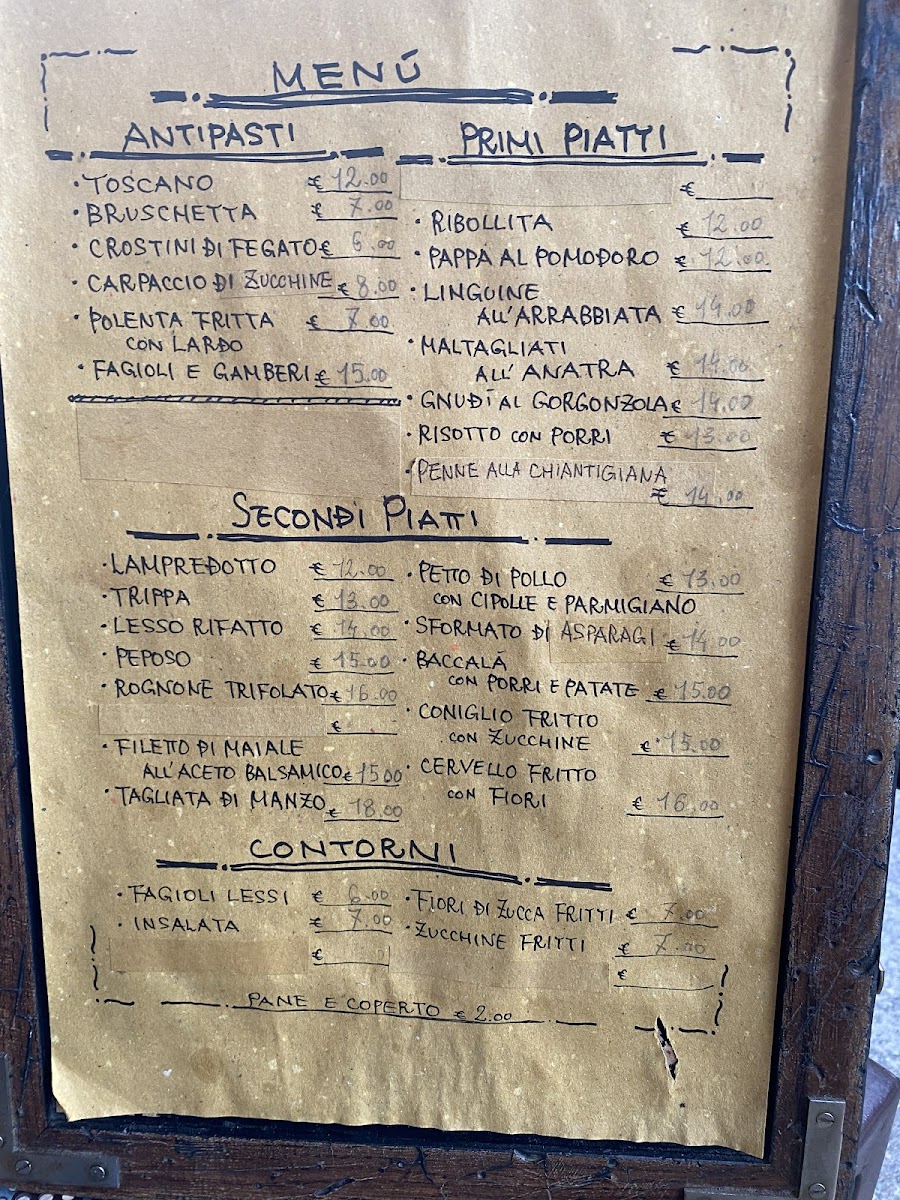 MENÚ
ANTIPASTI
· TOSCANO € 12.00
· BRUSCHETTA € 7.00
· CROSTINI DI FEGATO € 6.00
· CARPACCIO DI ZUCCHINE € 8.00
· POLENTA FRITTA € 7.00
CON LARDO
· FAGIOLI E GAMBERI € 15.00
PRIMI PIATTI
€
· RIBOLLITA € 12.00
· PAPPA AL POMODORO € 12.00
· LINGUINE
ALL'ARRABBIATA € 14.00
· MALTAGLIATI
ALL'ANATRA € 14.00
· GNUDI AL GORGONZOLA € 14.00
· RISOTTO CON PORRI € 13.00
· PENNE ALLA CHIANTIGIANA
€ 14.00
SECONDI PIATTI
· LAMPREDOTTO € 12.00
· TRIPPA € 13.00
· LESSO RIFATTO € 14.00
· PEPOSO € 15.00
· ROGNONE TRIFOLATO € 16.00
€
· FILETTO DI MAIALE
ALL'ACETO BALSAMICO € 15.00
· TAGLIATA DI MANZO € 18.00
· PETTO DI POLLO € 13.00
CON CIPOLLE E PARMIGIANO
· SFORMATO DI ASPARAGI € 14.00
· BACCALÁ
CON PORRI E PATATE € 15.00
· CONIGLIO FRITTO
CON ZUCCHINE € 15.00
· CERVELLO FRITTO
CON FIORI € 16.00
CONTORNI
· FAGIOLI LESSI € 6.00
· INSALATA € 7.00
€
· FIORI DI ZUCCA FRITTI € 7.00
· ZUCCHINE FRITTI € 7.00
€
PANE E COPERTO € 2.00